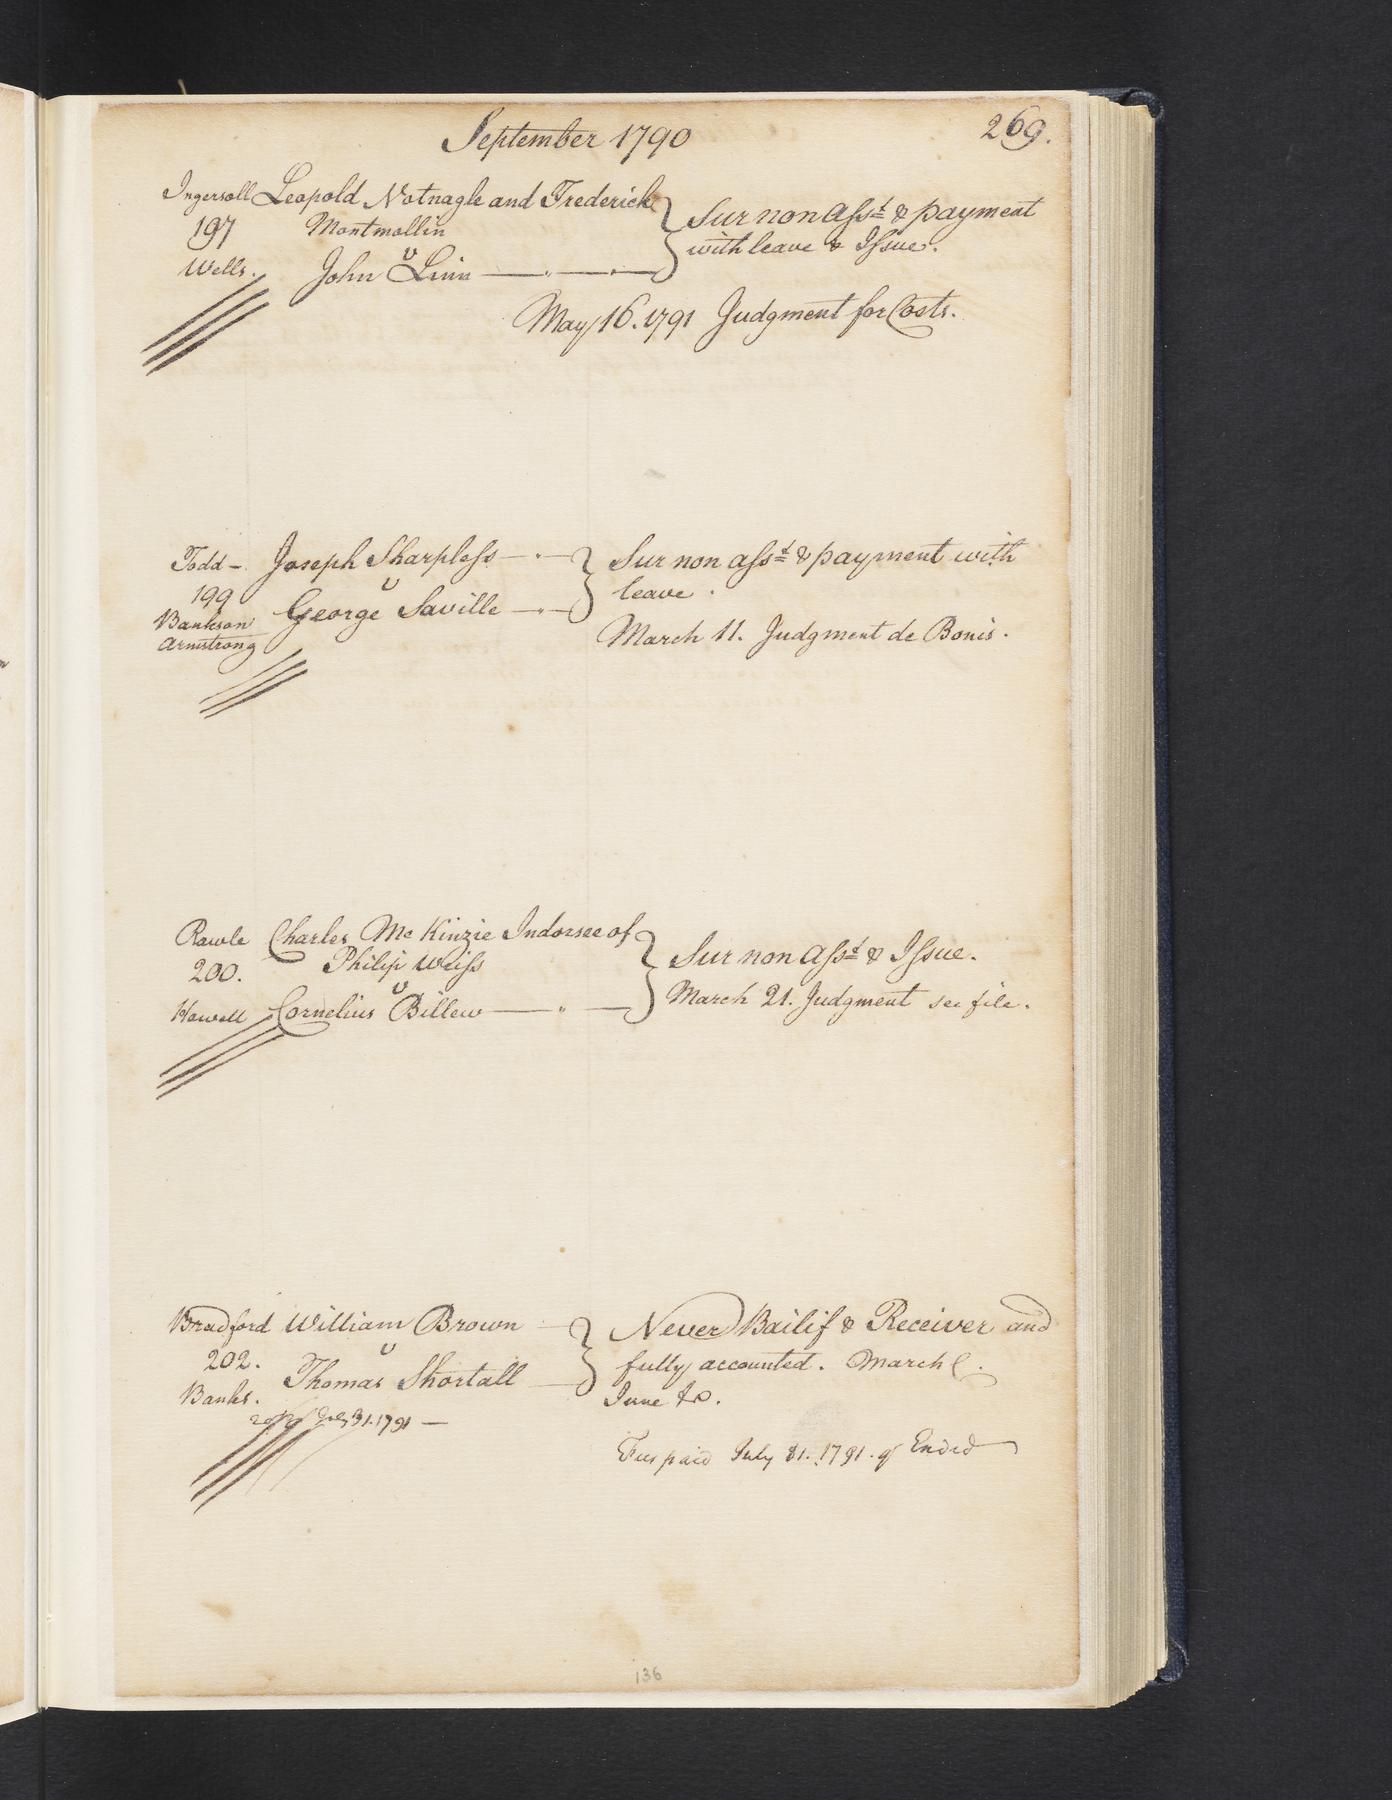 September 1790
269.
Ingersoll Leopold Notnagle and Frederick
197 Montmollin
v
Wells. John Linn
Sur non Asst & payment
with leave & Issue.
May 16. 1791 Judgment for Costs.
Todd - Joseph Sharpless
199 v
Bankson George Saville
Armstrong
Sur non asst & payment with
leave.
March 11. Judgment de Bonis.
Rawle Charles McKinzie Indorsee of
200. Philip Weiss
v
Howell Cornelius Billew
Sur non Asst & Issue.
March 21. Judgment see file.
Bradford William Brown
202. v
Thomas Shortall
Banks.
31. 1791 —
Never Bailif & Receiver and
fully accounted. March C.
June
paid July 31. 1791. Ended
136